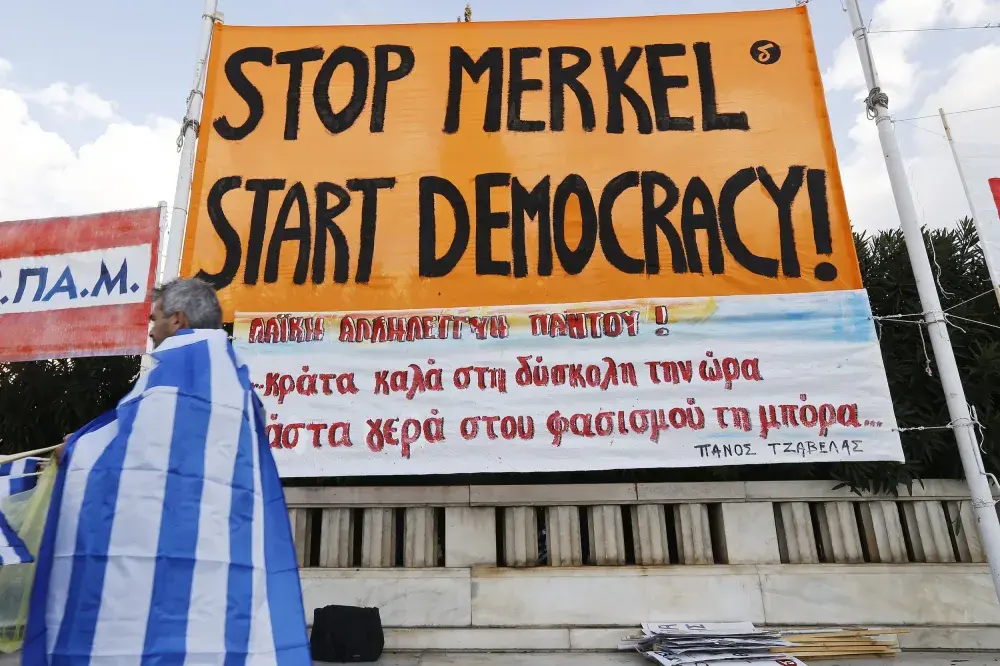 STOP MERKEL
δ
START DEMOCRACY!
.ΠΑ.Μ.
ΛΑΪΚΗ ΑΛΛΗΛΕΓΓΥΗ ΠΑΝΤΟΥ !
...κράτα καλά στη δύσκολη την ώρα
άστα γερά στου φασισμού τη μπόρα...
ΠΑΝΟΣ ΤΖΑΒΕΛΑΣ